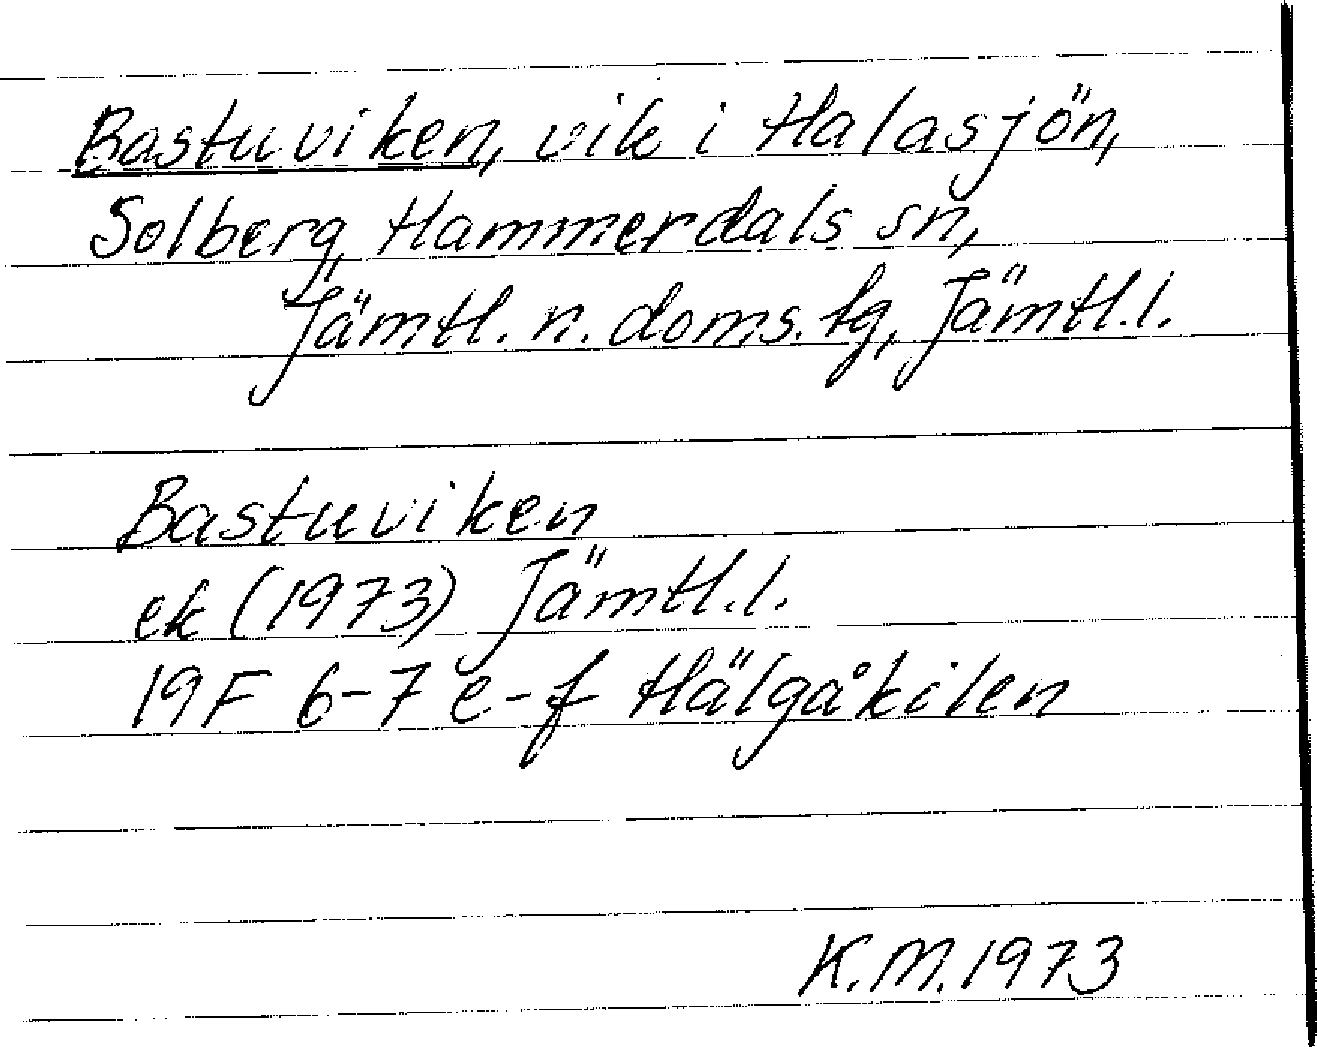 Bastuviken, vik i Halasjön,
Solberg, Hammerdals sn,
Jämtl. n. doms. tg, Jämtl. l.
Bastuviken
ek (1973) Jämtl. l.
19F 6-7 e-f Hälgåkilen
K.M. 1973